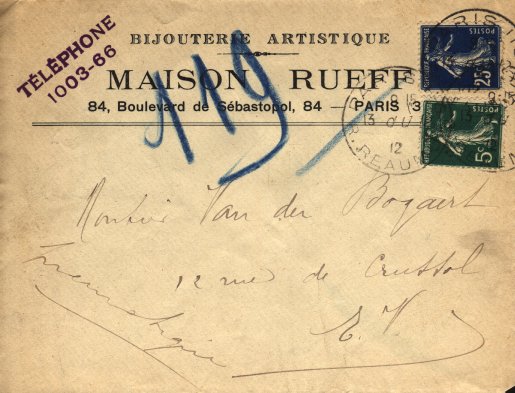 TÉLÉPHONE
1003-66
BIJOUTERIE ARTISTIQUE
MAISON RUEFF
84, Boulevard de Sébastopol, 84 — PARIS 3
119
POSTES
25c
POSTES
5c
PARIS
13
12
R. REAUM
Monsieur Van den Bogaert
12 rue de Crussol
E. V.
Pneumatique